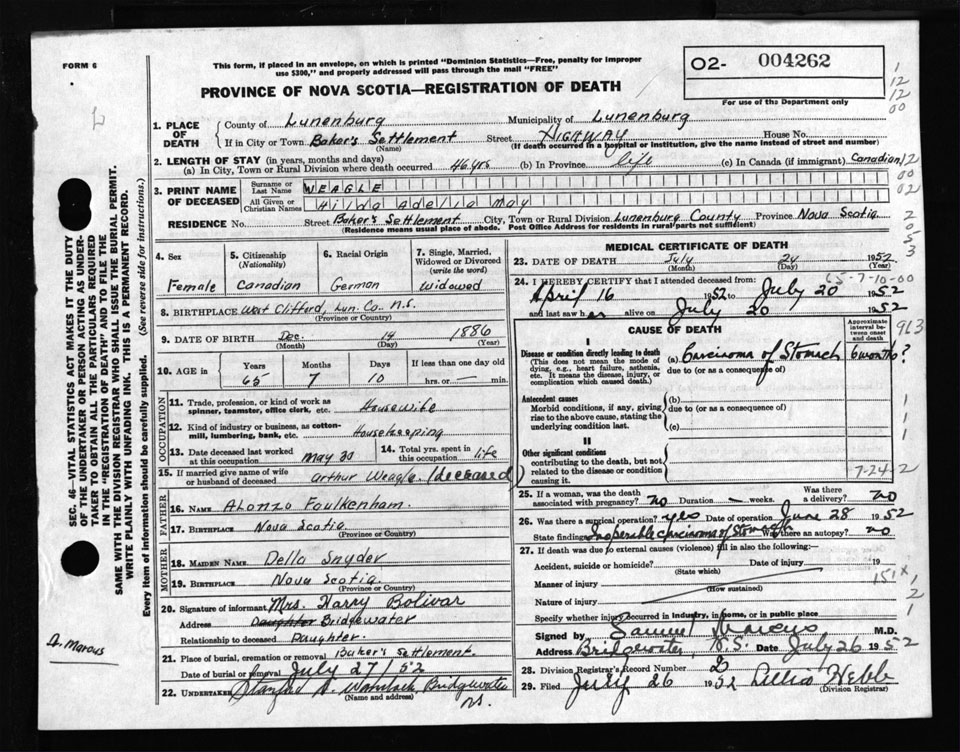 FORM 6
This form, if placed in an envelope, on which is printed "Dominion Statistics—Free, penalty for improper
use $300," and properly addressed will pass through the mail "FREE"
O2- 004262
For use of the Department only
PROVINCE OF NOVA SCOTIA—REGISTRATION OF DEATH
1. PLACE OF DEATH
County of Lunenburg Municipality of Lunenburg
If in City or Town Baker's Settlement Street HIGHWAY House No.
(Name) (If death occurred in a hospital or institution, give the name instead of street and number)
2. LENGTH OF STAY (in years, months and days)
(a) In City, Town or Rural Division where death occurred 46 yrs (b) In Province life (c) In Canada (if immigrant) Canadian
3. PRINT NAME OF DECEASED
Surname or Last Name WEAGLE
All Given or Christian Names Hilda Adella May
RESIDENCE No. Street Baker's Settlement City, Town or Rural Division Lunenburg County Province Nova Scotia
(Residence means usual place of abode. Post Office Address for residents in rural parts not sufficient)
4. Sex Female
5. Citizenship (Nationality) Canadian
6. Racial Origin German
7. Single, Married, Widowed or Divorced (write the word) Widowed
8. BIRTHPLACE West Clifford, Lun. Co. N.S.
(Province or Country)
9. DATE OF BIRTH Dec. 14 1886
(Month) (Day) (Year)
10. AGE in Years Months Days If less than one day old
65 7 10 hrs. or — min.
OCCUPATION
11. Trade, profession, or kind of work as spinner, teamster, office clerk, etc. Housewife
12. Kind of industry or business, as cotton-mill, lumbering, bank, etc. Housekeeping
13. Date deceased last worked at this occupation May 30
14. Total yrs. spent in this occupation life
15. If married give name of wife or husband of deceased Arthur Weagle (deceased)
FATHER
16. NAME Alonzo Foulkenham.
17. BIRTHPLACE Nova Scotia
(Province or Country)
MOTHER
18. MAIDEN NAME Della Snyder
19. BIRTHPLACE Nova Scotia
(Province or Country)
20. Signature of informant Mrs. Harry Bolivar
Address Daughter Bridgewater
Relationship to deceased Daughter.
21. Place of burial, cremation or removal Baker's Settlement.
Date of burial or removal July 27/52
22. Undertaker Bridgewater
(Name and address)
N.S.
MEDICAL CERTIFICATE OF DEATH
23. DATE OF DEATH July 24 1952
(Month) (Day) (Year)
65-7-10-00
24. I HEREBY CERTIFY that I attended deceased from:
April 16 1952 to July 20 1952
and last saw her alive on July 20 1952
CAUSE OF DEATH
Approximate interval between onset and death
I
Disease or condition directly leading to death
(This does not mean the mode of dying, e.g., heart failure, asthenia, etc. It means the disease, injury, or complication which caused death.)
(a) Carcinoma of Stomach 6 months?
due to (or as a consequence of)
Antecedent causes
Morbid conditions, if any, giving rise to the above cause, stating the underlying condition last.
(b)
due to (or as a consequence of)
(c)
II
Other significant conditions
contributing to the death, but not related to the disease or condition causing it.
7-24-2
25. If a woman, was the death associated with pregnancy? no Duration — weeks. Was there a delivery? no
26. Was there a surgical operation? yes Date of operation June 28 1952
State findings Inoperable carcinoma of Stomach Was there an autopsy? no
27. If death was due to external causes (violence) fill in also the following:—
Accident, suicide or homicide? Date of injury 19
(State which)
Manner of injury
(How sustained)
151x
Nature of injury
Specify whether injury occurred in industry, in home, or in public place
Signed by Samuel Marcus M.D.
Address Bridgewater, N.S. Date July 26 1952
28. Division Registrar's Record Number 2
29. Filed July 26 1952 Lillia Hebb
(Division Registrar)
SEC. 46—VITAL STATISTICS ACT MAKES IT THE DUTY
OF THE UNDERTAKER OR PERSON ACTING AS UNDERTAKER TO OBTAIN ALL THE PARTICULARS REQUIRED
IN THE "REGISTRATION OF DEATH" AND TO FILE THE
SAME WITH THE DIVISION REGISTRAR WHO SHALL ISSUE THE BURIAL PERMIT.
WRITE PLAINLY WITH UNFADING INK. THIS IS A PERMANENT RECORD.
Every item of information should be carefully supplied. (See reverse side for instructions.)
1
12
12
00
12
00
02
2
0
5
3
913
1
1
1
1
2
1